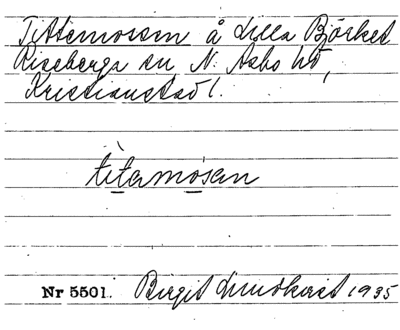 Tittemosen å Lilla Björket
Riseberga sn N. Åsbo hd,
Kristianstad l.
titamosan
Nr 5501. Birgit Lundkvist 1935